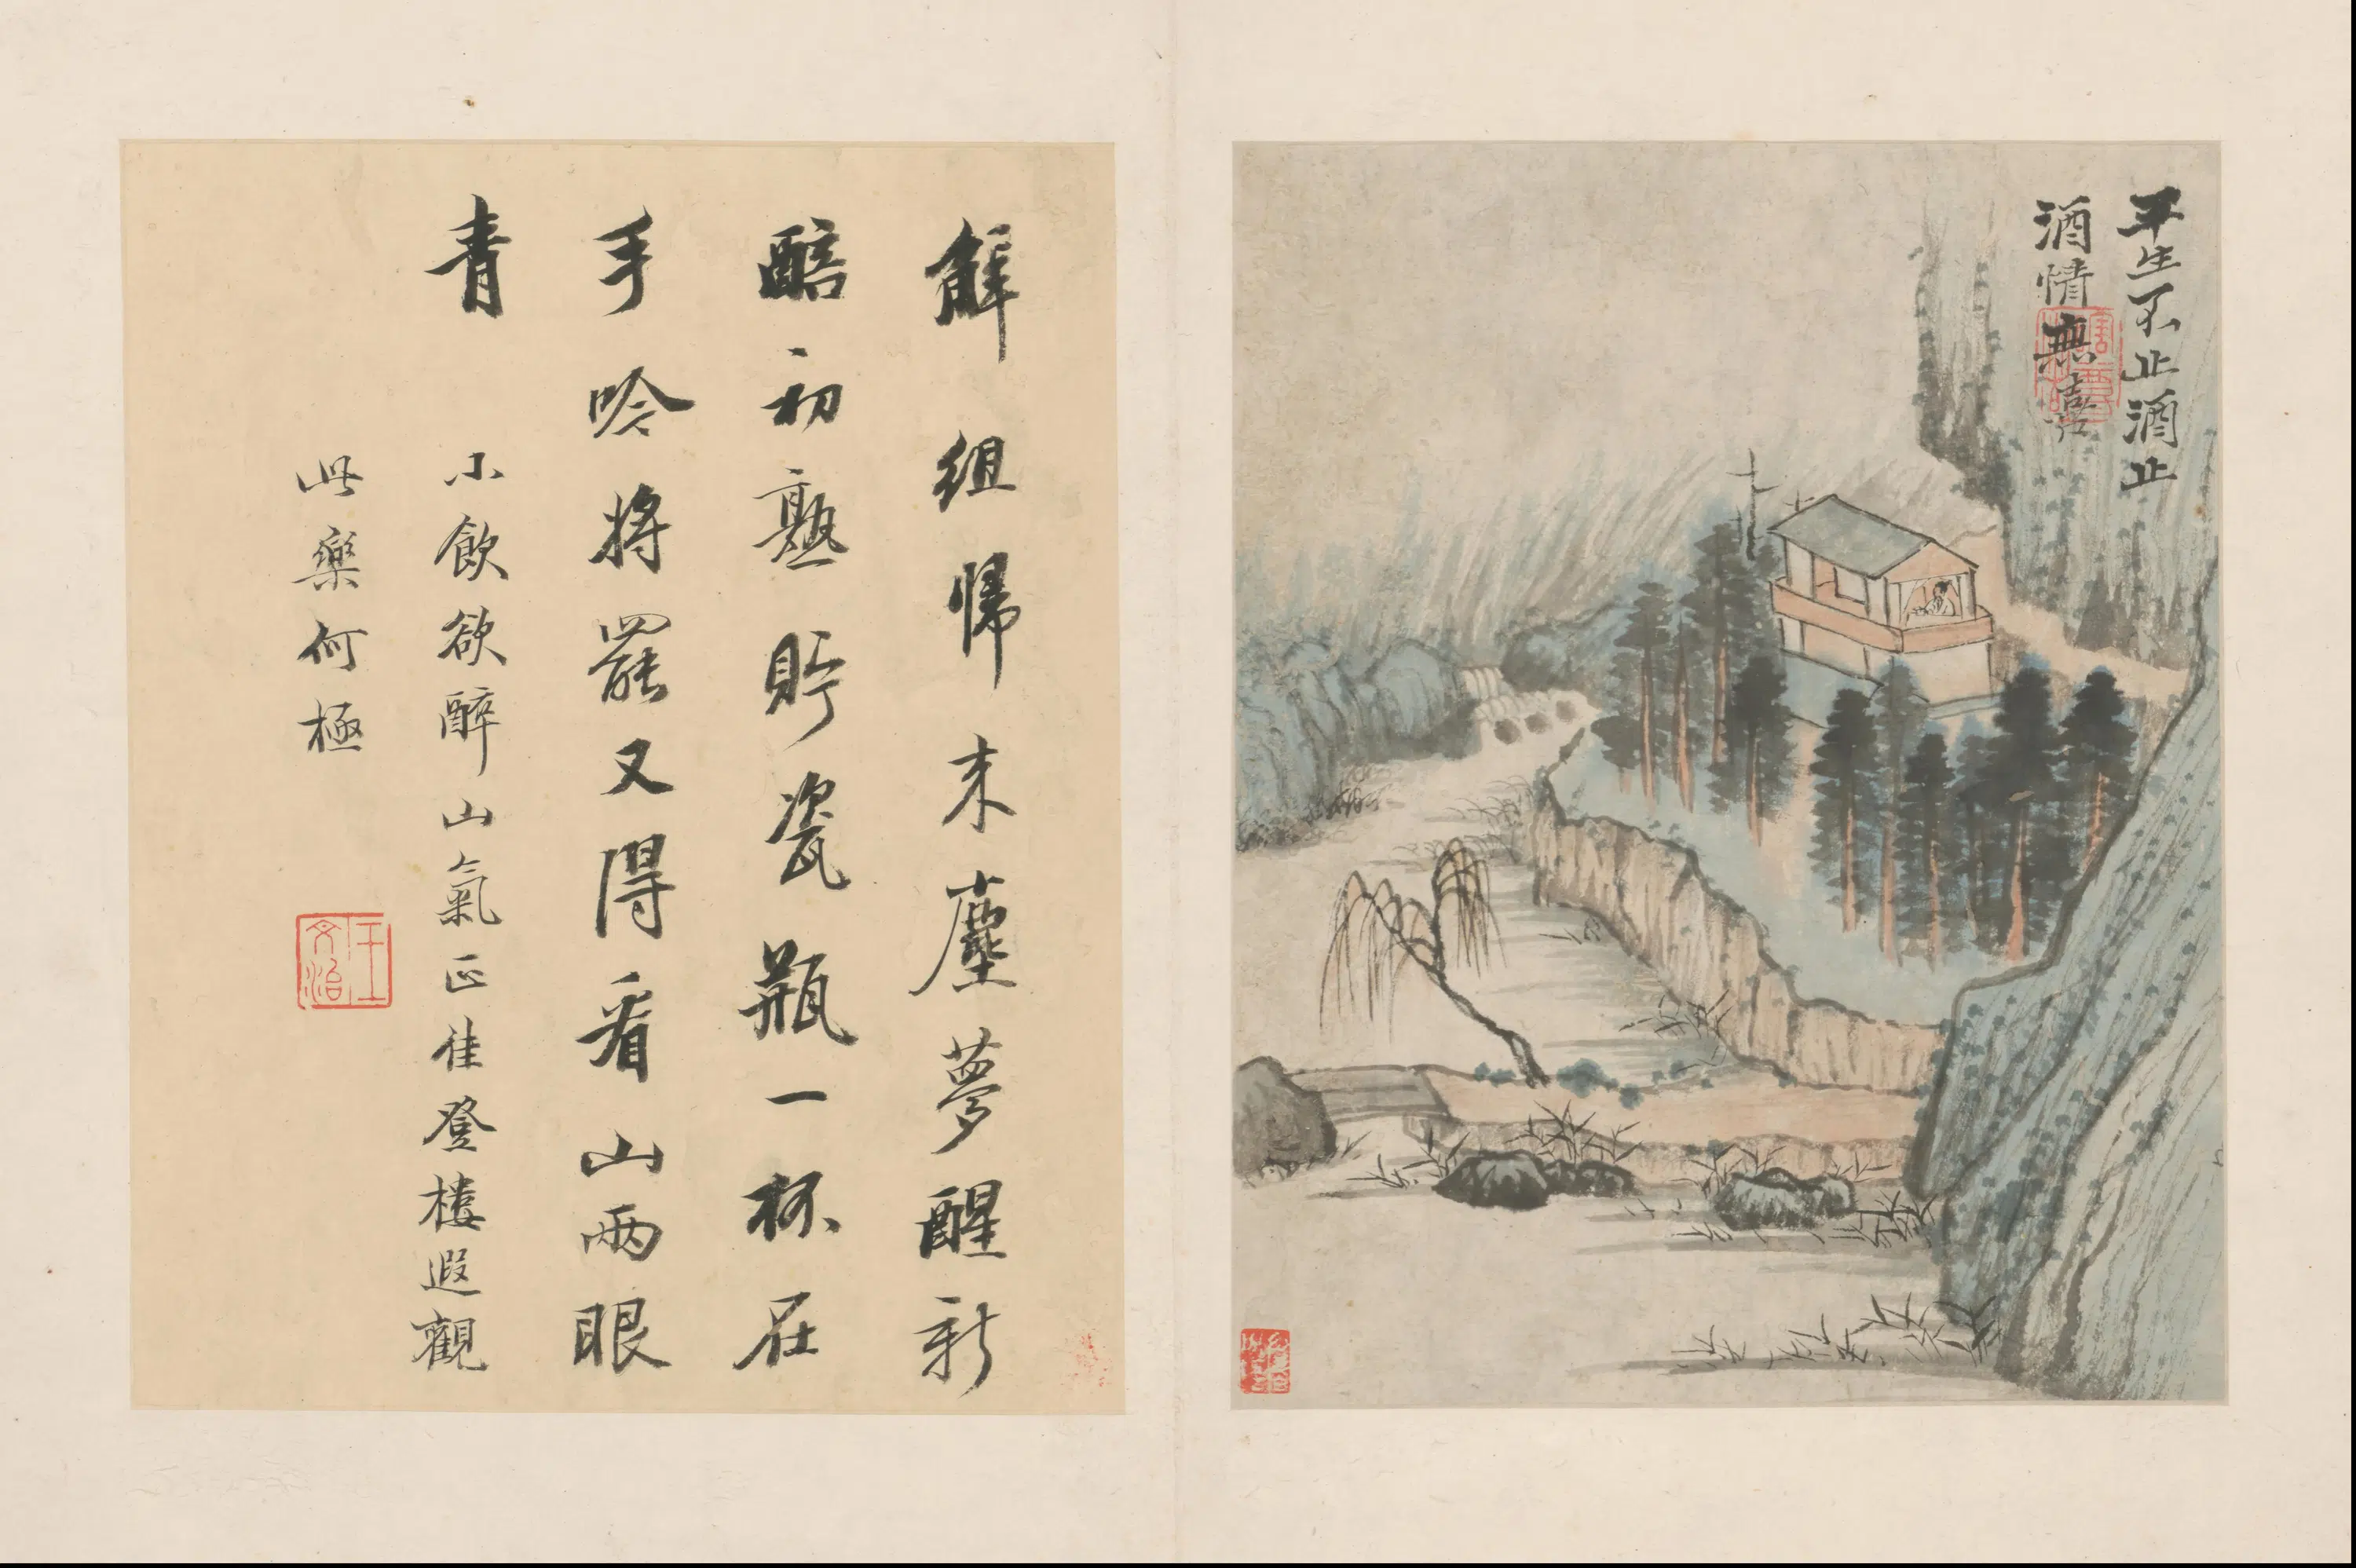 平生不止酒止
酒情無喜
解組歸来塵夢醒新
醅初熟貯瓷瓶一杯在
手吟將罷又得看山兩眼
青
小飲欲醉山氣正佳登樓遐觀
此樂何極
王文治